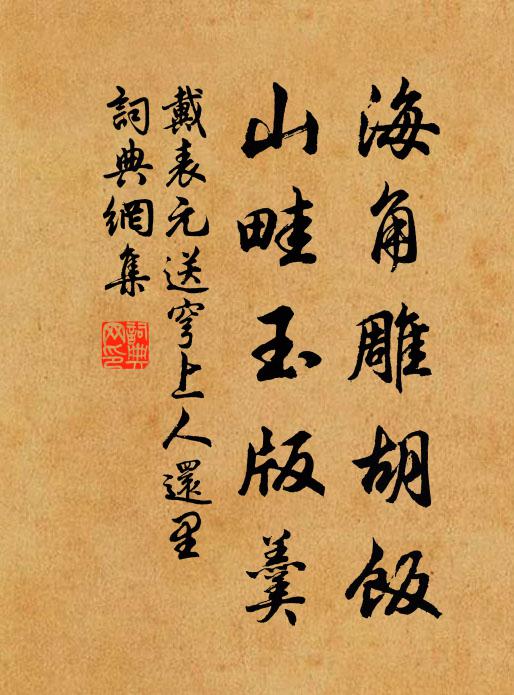 海角雕胡飯
山畦玉版羹
戴表元送穹上人還里
詞典網集
詞典
网印